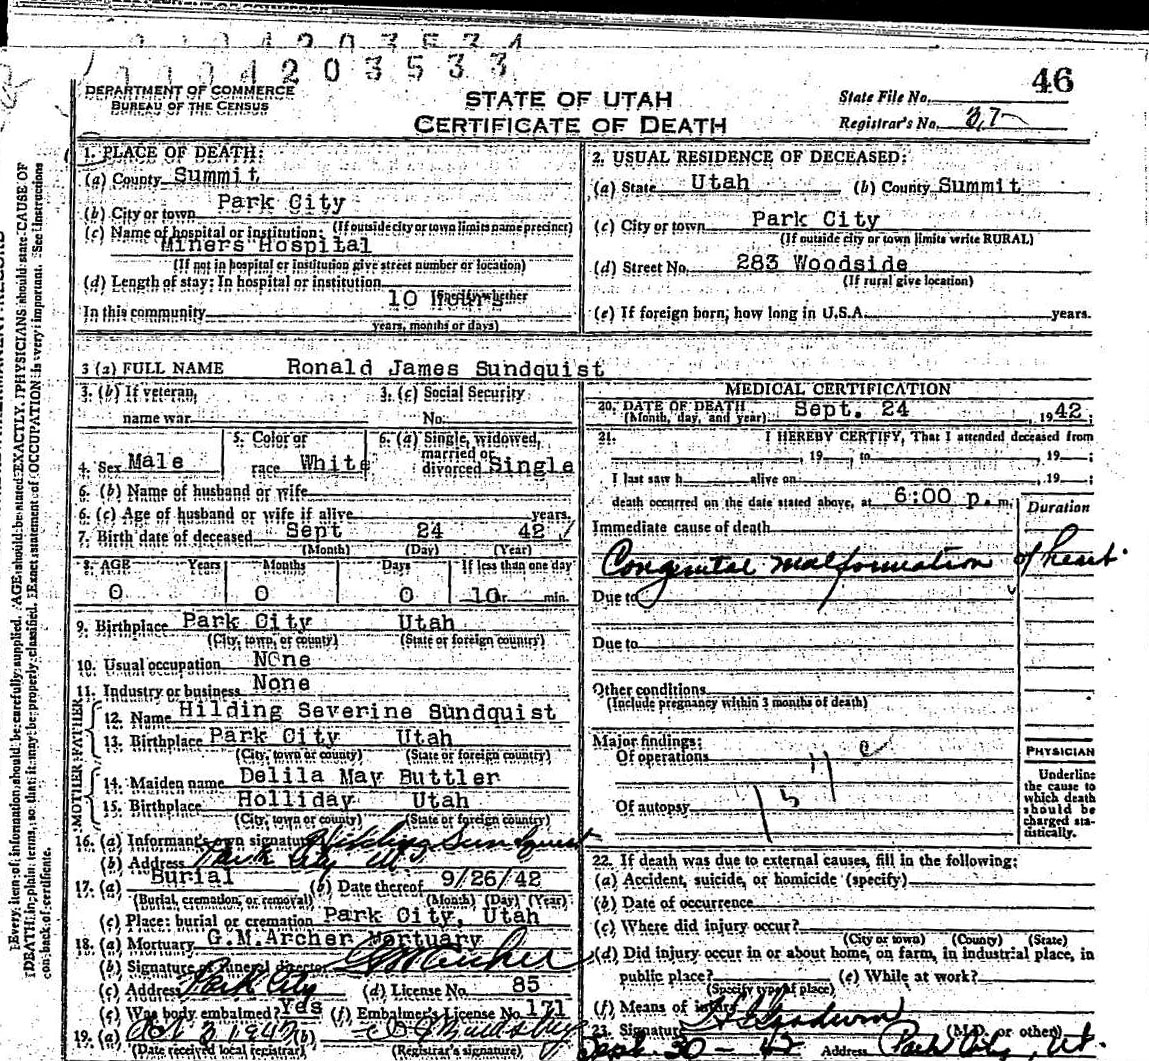 4203533
DEPARTMENT OF COMMERCE
BUREAU OF THE CENSUS
STATE OF UTAH
CERTIFICATE OF DEATH
46
State File No.
Registrar's No. 37
1. PLACE OF DEATH:
(a) County Summit
(b) City or town Park City
(If outside city or town limits name precinct)
(c) Name of hospital or institution:
Miners Hospital
(If not in hospital or institution give street number or location)
(d) Length of stay: In hospital or institution
10 Hours
(Specify whether
In this community
years, months or days)
2. USUAL RESIDENCE OF DECEASED:
(a) State Utah (b) County Summit
(c) City or town Park City
(If outside city or town limits write RURAL)
(d) Street No. 283 Woodside
(If rural give location)
(e) If foreign born, how long in U.S.A. years.
3 (a) FULL NAME Ronald James Sundquist
3. (b) If veteran,
name war
3. (c) Social Security
No.
4. Sex Male
5. Color or
race White
6. (a) Single, widowed,
married or
divorced Single
6. (b) Name of husband or wife
6. (c) Age of husband or wife if alive years.
7. Birth date of deceased Sept 24 42
(Month) (Day) (Year)
8. AGE Years Months Days If less than one day
0 0 0 10 hr. min.
9. Birthplace Park City Utah
(City, town, or county) (State or foreign country)
10. Usual occupation None
11. Industry or business None
FATHER
12. Name Hilding Severine Sundquist
13. Birthplace Park City Utah
(City, town or county) (State or foreign country)
MOTHER
14. Maiden name Delila May Buttler
15. Birthplace Holliday Utah
(City, town or county) (State or foreign country)
16. (a) Informant's own signature Hilding Sundquist
(b) Address Park City Ut
17. (a) Burial (b) Date thereof 9/26/42
(Burial, cremation, or removal) (Month) (Day) (Year)
(c) Place: burial or cremation Park City, Utah
18. (a) Mortuary G.M.Archer Mortuary
(b) Signature of funeral director GM Archer
(c) Address Park City (d) License No. 85
(e) Was body embalmed? Yes (f) Embalmer's License No. 171
19. (a) Oct 2 1942 (b)
(Date received local registrar) (Registrar's signature)
MEDICAL CERTIFICATION
20. DATE OF DEATH
(Month, day, and year) Sept. 24, 1942.
21. I HEREBY CERTIFY, That I attended deceased from
, 19 , to , 19 ;
I last saw h alive on , 19 ;
death occurred on the date stated above, at 6:00 p.m.
Duration
Immediate cause of death
Congenital malformation of heart
Due to
Due to
Other conditions
(Include pregnancy within 3 months of death)
Major findings:
Of operations
Of autopsy
PHYSICIAN
Underline
the cause to
which death
should be
charged sta-
tistically.
22. If death was due to external causes, fill in the following:
(a) Accident, suicide, or homicide (specify)
(b) Date of occurrence
(c) Where did injury occur?
(City or town) (County) (State)
(d) Did injury occur in or about home, on farm, in industrial place, in
public place? (e) While at work?
(Specify type of place)
(f) Means of injury
23. Signature (M.D. or other)
Sept 30 - 42 Address Park City, Ut.
Every item of information should be carefully supplied. AGE should be stated EXACTLY. PHYSICIANS should state CAUSE OF
DEATH in plain terms, so that it may be properly classified. Exact statement of OCCUPATION is very important. See instructions
on back of certificate.